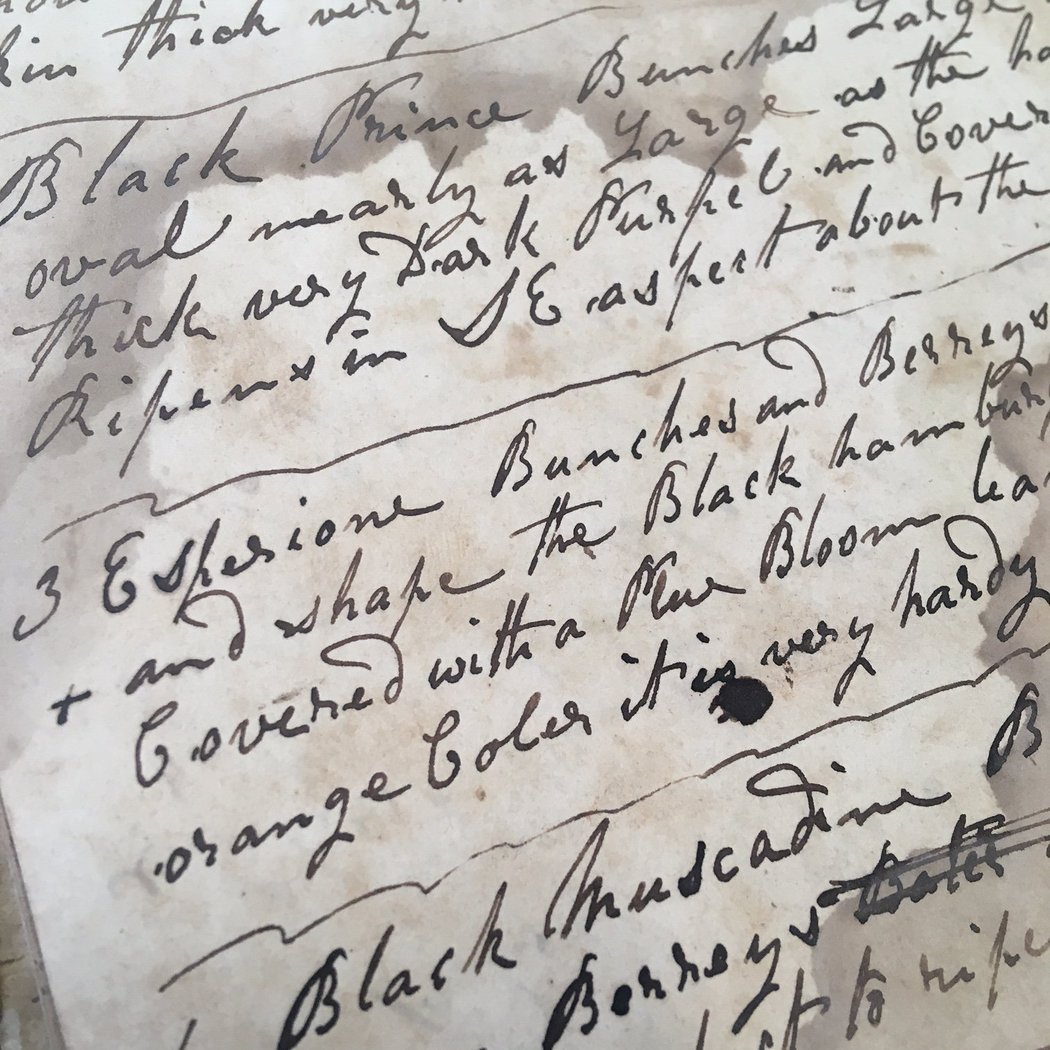 kin thick very
Black Prince Bunches Large
oval nearly as Large as the
thick very Dark Purpel and Cover
Ripens in SE aspect about the
3 Esperione Bunches and Berreys
+ and shape the Black hambur
Covered with a Plue Bloom lea
orange Coler it is very hardy
Black Muscadine B
Berreys
to ripe